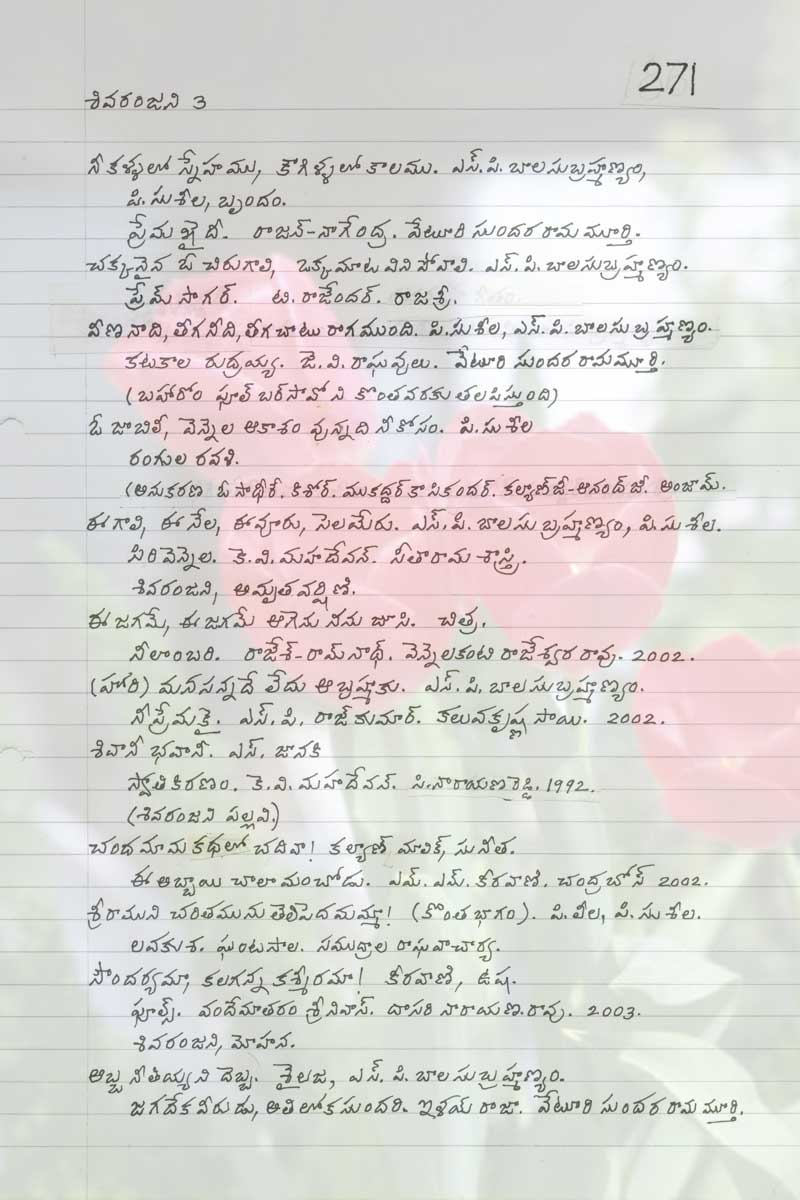 271
శివరంజని 3
నీ కళ్ళలో స్నేహము, కౌగిళ్ళలో కాలము. ఎస్.పి. బాలసుబ్రహ్మణ్యం,
పి. సుశీల, బృందం.
ప్రేమ ఖైదీ. రాజన్-నాగేంద్ర. వేటూరి సుందర రామ మూర్తి.
చక్కనైన ఓ చిరుగాలి, ఒక్కమాట విని పోవాలి. ఎస్. పి. బాలసుబ్రహ్మణ్యం.
ప్రేమ్ సాగర్. టి. రాజేందర్. రాజశ్రీ.
వీణ నాది, తీగ నీది, తీగ చాటు రాగముంది. పి. సుశీల, ఎస్. పి. బాలసుబ్రహ్మణ్యం.
కటకాల రుద్రయ్య. జె. వి. రాఘవులు. వేటూరి సుందర రామమూర్తి.
(బహారోం ఫూల్ బర్ సావో ని కొంతవరకు తలపిస్తుంది)
ఓ జాబిలీ, వెన్నెల ఆకాశం వున్నది నీ కోసం. పి. సుశీల
రంగుల రవళి.
(అనుకరణ ఓ సాథీరే. కిశోర్. ముకద్దర్ కా సికందర్. కల్యాణ్‌జీ-ఆనంద్ జీ. అంజామ్.
ఈ గాలి, ఈ నేల, ఈ వూరు, సెలయేరు. ఎస్. పి. బాలసుబ్రహ్మణ్యం, పి. సుశీల.
సిరివెన్నెల. కె. వి. మహదేవన్. సీతారామ శాస్త్రి.
శివరంజని, అమృతవర్షిణి.
ఈ జగమే, ఈ జగమే ఆగెను నిను జూసి. చిత్ర.
నీలాంబరి. రాజేశ్-రామ్‌నాథ్. వెన్నెలకంటి రాజేశ్వర రావు. 2002.
(హారి) మనసన్నదే లేదు ఆ బ్రహ్మకు. ఎస్. పి. బాలసుబ్రహ్మణ్యం.
నీ ప్రేమకై. ఎస్. ఏ. రాజ్ కుమార్. కలువకృష్ణ సాయి. 2002.
శివానీ భవానీ. ఎస్. జానకి
స్వాతి కిరణం. కె. వి. మహదేవన్. సి. నారాయణ రెడ్డి. 1992.
(శివరంజని పల్లవి.)
చందమామ కథలో చదివా! కల్యాణ్ మాలిక్, సునీత.
ఈ అబ్బాయి చాలా మంచోడు. ఎమ్. ఎమ్. కీరవాణి. చంద్రబోస్ 2002.
శ్రీరాముని చరితమును తెలిపెదమమ్మా! (కొంత భాగం). పి. లీల, పి. సుశీల.
లవకుశ. ఘంటసాల. సముద్రాల రాఘవాచార్య.
సౌందర్యమా, కలగన్న కశ్మీరమా! కీరవాణి, ఉష.
ఫూల్స్. వందేమాతరం శ్రీనివాస్. దాసరి నారాయణ రావు. 2003.
శివరంజని, మోహన.
అబ్బ నీ తియ్యని దెబ్బ. శైలజ, ఎస్. పి. బాలసుబ్రహ్మణ్యం.
జగదేక వీరుడు, అతిలోక సుందరి. ఇళయ్ రాజా. వేటూరి సుందర రామ మూర్తి.